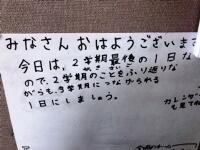 みなさん おはようございます
今日は、2学期最後の1日な
さいご
ので、2学期のことをふり返りな
がらも、3学期につなげられる
1日にしましょう。
カレンダー